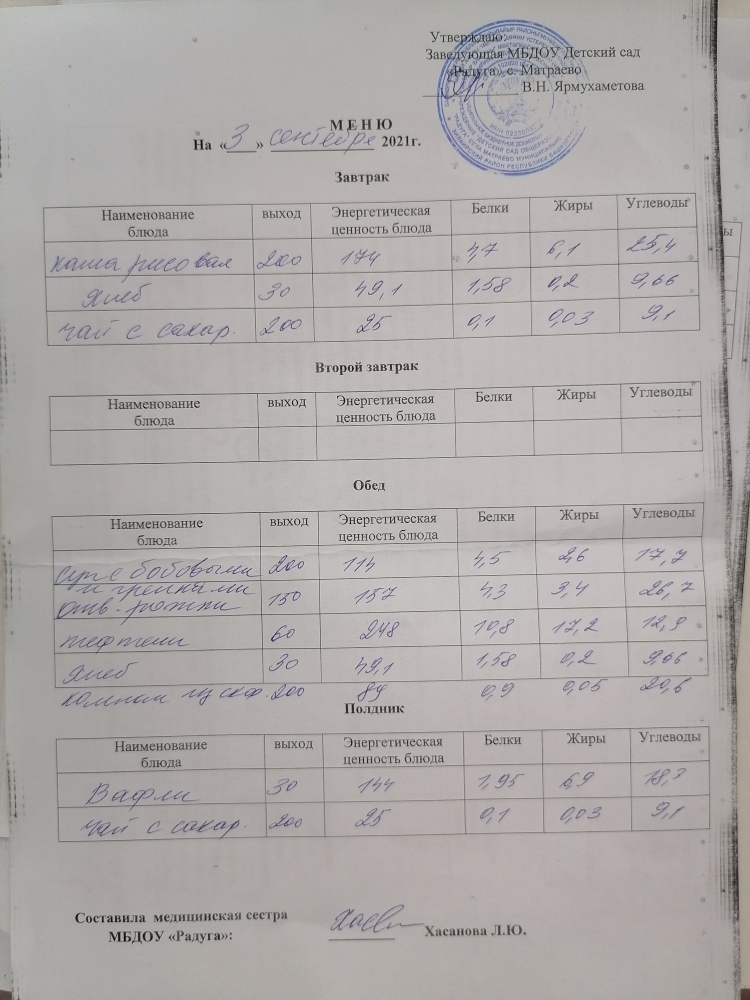 Утверждаю:
Заведующая МБДОУ Детский сад
«Радуга» с. Матраево
В.Н. Ярмухаметова
МЕНЮ
На «3» сентября 2021г.
Завтрак
Наименование блюда выход Энергетическая ценность блюда Белки Жиры Углеводы
каша рисовая 200 174 4,7 6,1 25,4
хлеб 30 49,1 1,58 0,2 9,66
чай с сахар. 200 25 0,1 0,03 9,1
Второй завтрак
Наименование блюда выход Энергетическая ценность блюда Белки Жиры Углеводы
Обед
Наименование блюда выход Энергетическая ценность блюда Белки Жиры Углеводы
суп с бобовыми 200 114 4,5 2,6 17,7
и гренками
отв. рожки 150 157 4,3 3,4 26,7
тефтели 60 248 10,8 17,2 12,9
хлеб 30 49,1 1,58 0,2 9,66
компот из сухоф. 200 89 0,9 0,05 20,6
Полдник
Наименование блюда выход Энергетическая ценность блюда Белки Жиры Углеводы
Вафли 30 144 1,95 6,9
чай с сахар. 200 25 0,1 0,03 9,1
Составила медицинская сестра
МБДОУ «Радуга»: Хасанова Л.Ю.